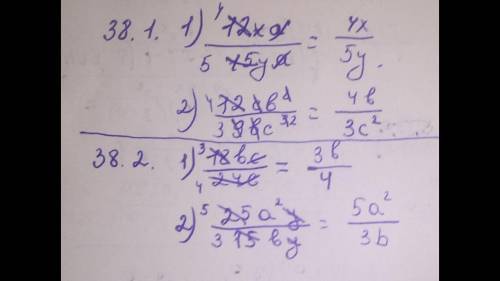 38.1. 1) ⁴12xa / 5 15ya = 4x / 5y.
2) = 4b / 3c²
38.2. 1) ³18bc / ₄24c = 3b / 4
2) ⁵25a²y / 3 15by = 5a² / 3b